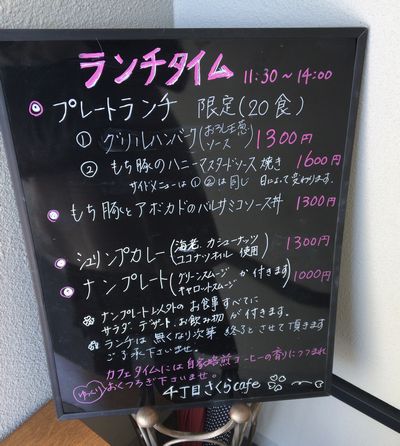 ランチタイム 11:30～14:00
プレートランチ 限定(20食)
① グリルハンバーグ(おろし玉葱ソース) 1300円
② もち豚のハニーマスタードソース焼き 1600円
サイドメニューは①②は同じ 日によって変わります.
もち豚とアボカドのバルサミコソース丼 1300円
シュリンプカレー(海老、カシューナッツ 1300円
ココナツオイル 使用)
ナンプレート(グリーンスムージ か付きます) 1000円
キャロットスムージ
ナンプレート以外の お食事すべてに
サラダ、デザート、お飲み物 が付きます.
ランチは 無くなり次第 終了と させて頂きます
ご了承下さいませ.
カフェタイムには自家焙煎コーヒーの香りにつつまれ
ゆっくり おくつろぎ下さいませ。
4丁目さくらcafe